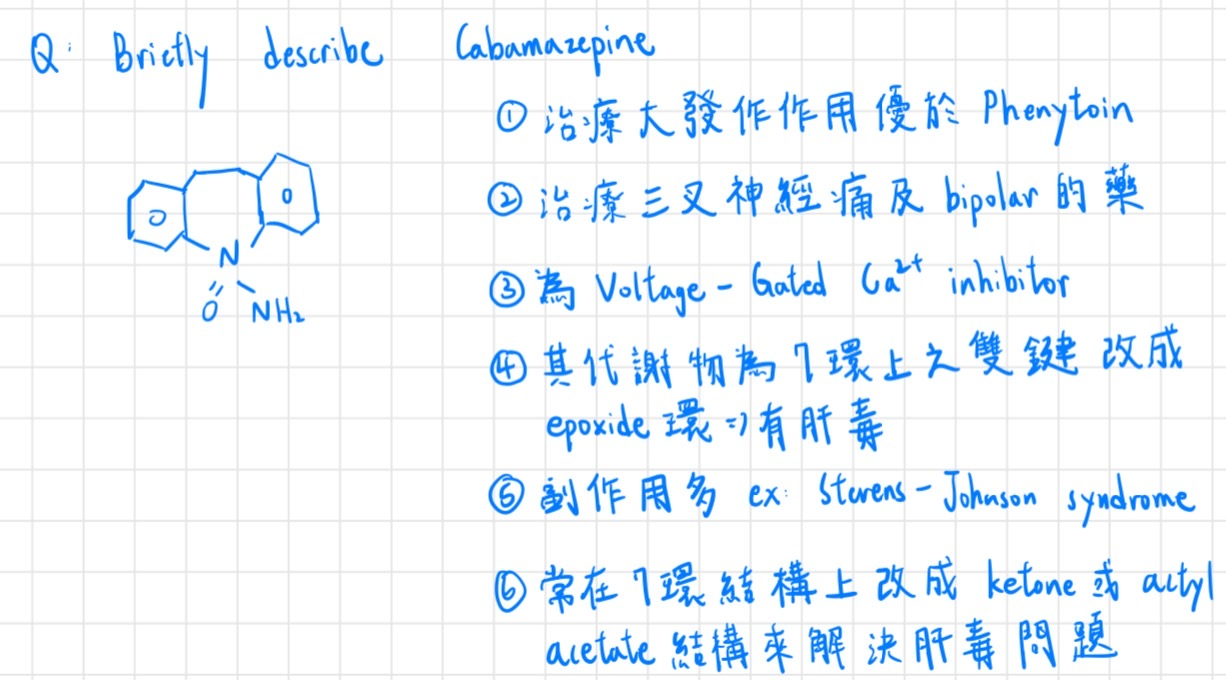 Q: Briefly describe Cabamazepine
① 治療大發作作用優於 Phenytoin
② 治療三叉神經痛及 bipolar 的藥
③ 為 Voltage-Gated Ca²⁺ inhibitor
④ 其代謝物為7環上之雙鍵改成
epoxide 環 => 有肝毒
⑤ 副作用多 ex: Stevens-Johnson syndrome
⑥ 常在7環結構上改成 ketone 或 actyl
acetate 結構來解決肝毒問題
N
O NH₂